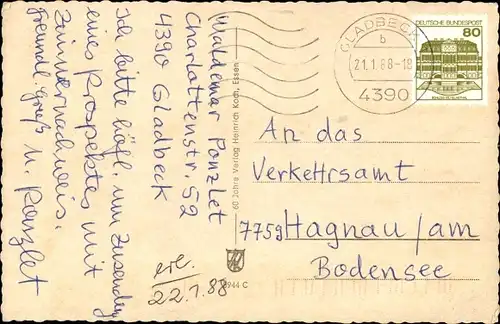 Waldemar Ponzlet
Charlottenstr. 52
4390 Gladbeck
Ich bitte höfl. um Zusendg
eines Prospektes mit
Zimmernachweis.
freundl. Gruß W. Ponzlet
erl.
22.1.88
60 Jahre Verlag Heinrich Koch, Essen
8944 C
GLADBECK
b
21.1.88-18
4390
DEUTSCHE BUNDESPOST
80
An das
Verkehrsamt
7759 Hagnau/am
Bodensee